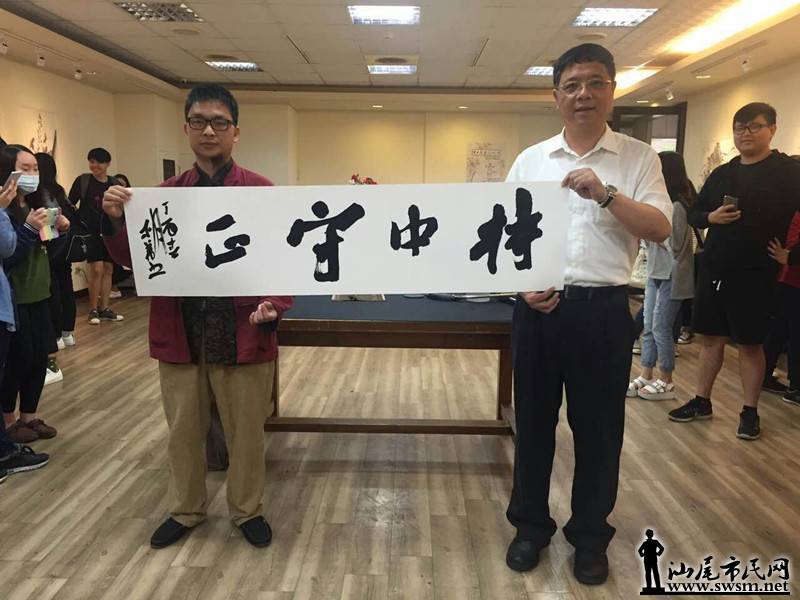 持中守正
丁酉
汕尾市民网
www.swsm.net